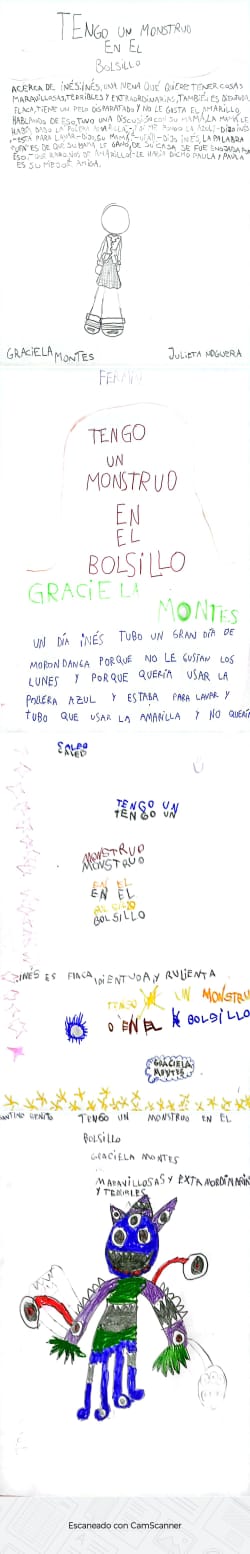 TENGO UN MONSTRUO
EN EL
BOLSILLO
ACERCA DE INÉS: INÉS, UNA NENA QUE QUIERE TENER COSAS
MARAVILLOSAS, TERRIBLES Y EXTRAORDINARIAS, TAMBIÉN ES DIENTUDA,
FLACA, TIENE UN PELO DISPARATADO Y NO LE GUSTA EL AMARILLO,
HABLANDO DE ESO, TUVO UNA DISCUSIÓN CON SU MAMÁ, LA MAMÁ LE
HABÍA DADO LA POLLERA AMARILLA
-ESTÁ PARA LAVAR-DIJO SU MAMÁ DIJO INÉS, LA PALABRA
ANTES DE QUE SU MAMÁ LE GANÓ, DE SU CASA SE FUE ENOJADA POR
ESO, LE HABÍA DICHO PAULA Y PAULA
ES SU MEJOR AMIGA.
GRACIELA MONTES
JULIETA NOGUERA
FERMÍN
TENGO
UN
MONSTRUO
EN
EL
BOLSILLO
GRACIELA
MONTES
UN DÍA INÉS TUBO UN GRAN DÍA DE
MORONDANGA PORQUE NO LE GUSTAN LOS
LUNES Y PORQUE QUERÍA USAR LA
POLLERA AZUL Y ESTABA PARA LAVAR Y
TUBO QUE USAR LA AMARILLA Y NO QUERÍA
TENGO UN
TENGO UN
MONSTRUO
MONSTRUO
EN EL
EN EL
BOLSILLO
BOLSILLO
INÉS ES FLACA, DIENTUDA Y RULIENTA
TENGO UN MONSTRU
O EN EL BOLSILLO
GRACIELA
MONTES
BENITO TENGO UN MONSTRUO EN EL
BOLSILLO
GRACIELA MONTES
MARAVILLOSAS Y EXTRAHORDINARIAS
Y TERRIBLES
Escaneado con CamScanner